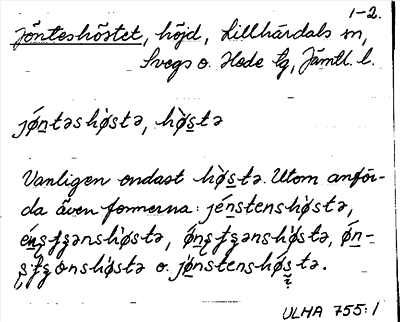 1-2.
Jönteshöstet, höjd, Lillhärdals sn,
Svegs o. Hede tg, Jämtl. l.
jǿntəshøstə, høstə
Vanligen endast høstə. Utom anför-
da även formerna: jénstenshøstə,
høstə,
høstə o. jønstenshøstə.
ULMA 755:1